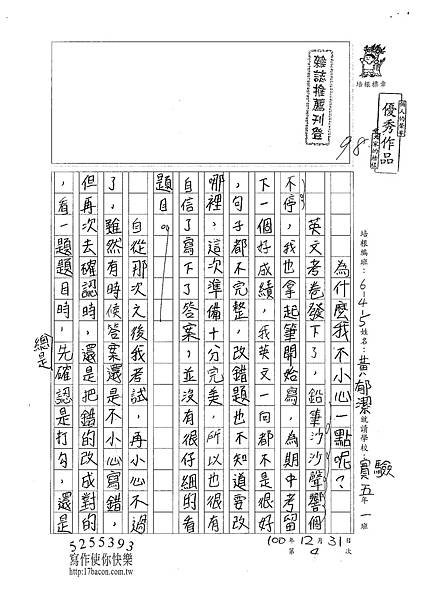 培根標章
個人的榮譽
優秀作品
大家的榜樣
雜誌推薦刊登
98
培根編班：645 姓名：黃郁潔 就讀學校：實驗 五年一班
為什麼我不小心一點呢？
英文考卷發下了，鉛筆沙沙聲響個
不停，我也拿起筆開始寫，為期中考留
下一個好成績，我英文一向都不是很好
，句子都不完整，改錯題也不知道要改
哪裡，這次準備十分完美，所以也很有
自信了寫下了答案，並沒有很仔細的看
題目。
自從那次之後我考試，再小心不過
了，雖然有時候答案還是不小心寫錯，
但再次去確認時，還是把錯的改成對的
，看一題題目時，先確認是打勾，還是
總是
100年12月31日
第4次
5255393
寫作使你快樂
http://17bacon.com.tw/